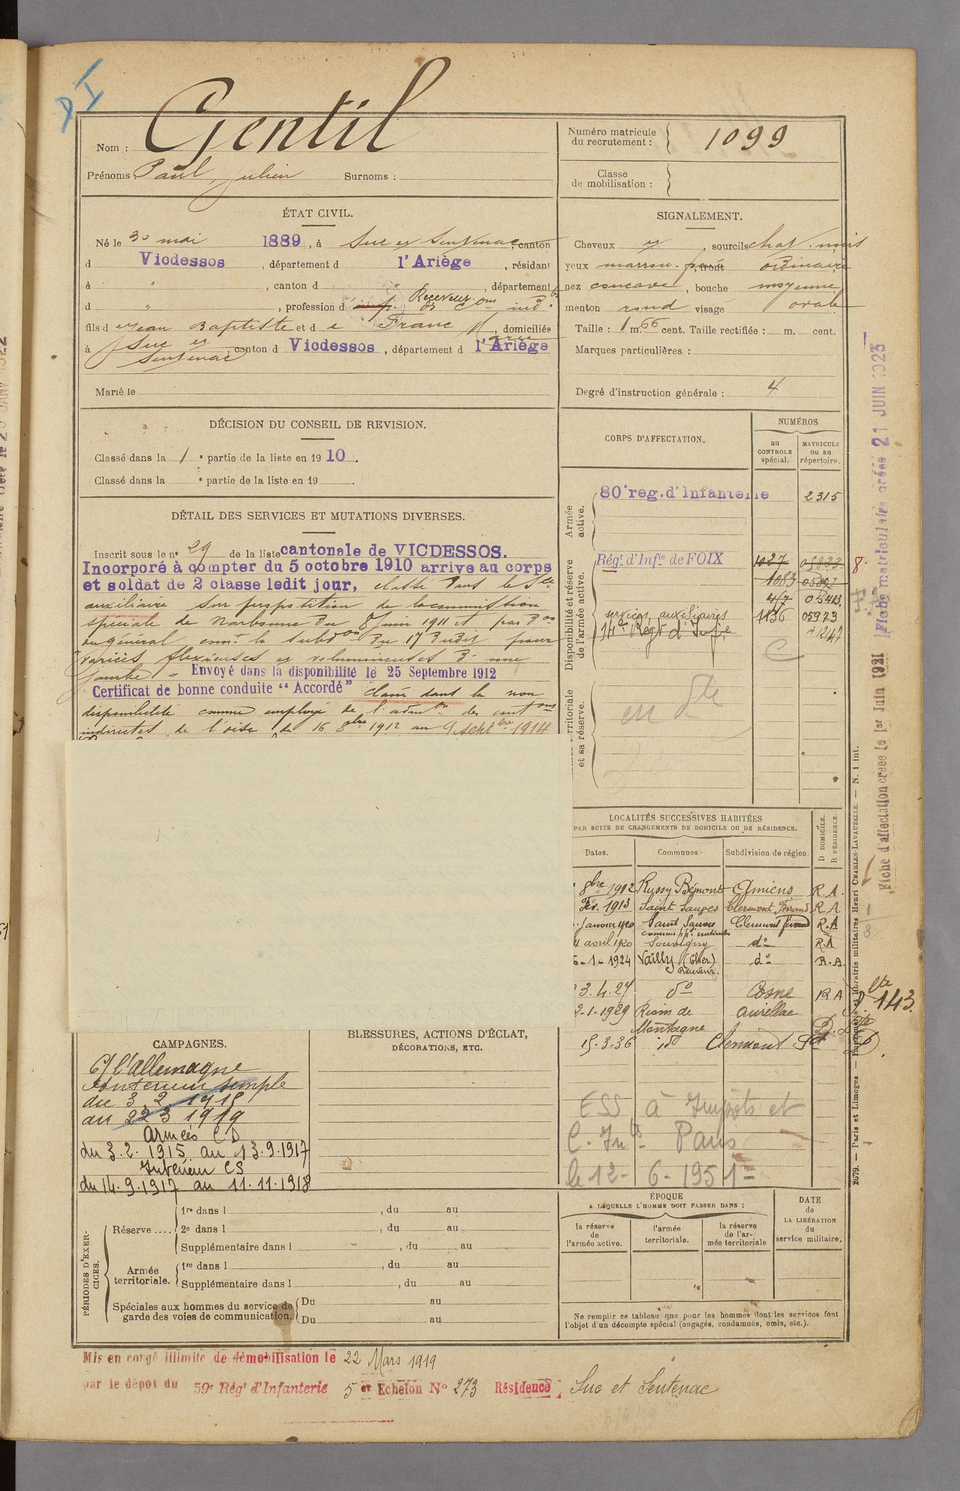 Gentil
Nom :
Prénoms Paul, Julien Surnoms :
Numéro matricule du recrutement : 1099
Classe de mobilisation :
ÉTAT CIVIL.
Né le 30 mai 1889, à Suc et Sentenac, canton
d Vicdessos, département d l'Ariège, résidant
à " , canton d " , département
d " , profession d Receveur de Con ind
fils d e Jean Baptiste et d e Franc , domiciliés
à Suc et Sentenac canton d Vicdessos, département d l'Ariège
Marié le
SIGNALEMENT.
Cheveux et , sourcils chat.
yeux marron , front ordinaire
nez concave , bouche moyenne
menton rond visage ovale
Taille : 1 m. 66 cent. Taille rectifiée : m. cent.
Marques particulières :
Degré d'instruction générale : 4
DÉCISION DU CONSEIL DE REVISION.
Classé dans la 1 e partie de la liste en 1910.
Classé dans la e partie de la liste en 19 .
DÉTAIL DES SERVICES ET MUTATIONS DIVERSES.
Inscrit sous le n° 29 de la liste cantonale de VICDESSOS.
Incorporé à compter du 5 octobre 1910 arrivé au corps
et soldat de 2 classe ledit jour, classé dans le Sce
auxiliaire sur proposition de la commission
spéciale de Narbonne du 8 juin 1911 et par Don
du général comt la Subdon du 17 dudit pour
varices flexueuses et volumineuses d'une
jambe " Envoyé dans la disponibilité le 25 Septembre 1912
Certificat de bonne conduite "Accordé" Classé dans la non
disponibilité comme employé de l'admon des contons
indirectes de l'oise du 16 8bre 1912 au 9 septbre 1914
CORPS D'AFFECTATION.
NUMÉROS
au CONTROLE spécial.
MATRICULE ou au répertoire.
Armée active.
80e rég. d'Infanterie 2315
Disponibilité et réserve de l'armée active.
Régt d'Infie de FOIX 1027
1083
services auxiliaires 1136 05923
14e Régt d'Infie
territoriale et sa réserve.
LOCALITÉS SUCCESSIVES HABITÉES
PAR SUITE DE CHANGEMENTS DE DOMICILE OU DE RÉSIDENCE.
Dates. Communes. Subdivision de région. D DOMICILE. R RÉSIDENCE.
8bre 1912 Russy Bémont Amiens R A.
Fév. 1913 Saint Sauges Clermont Ferrand R A
janvier 1920 Saint Sauves Clermont Ferrand R.A
avril 1920 Souvigny do R A
6-1-1924 Vailly (Cher) do R.A.
3.4.27 do Cosne R A
2-1-1929 Riom de Montagne Aurillac
15-3-36 ido Clermont Fd
ESS à Impôts et
C. Ind Paris
le 12-6-1951
CAMPAGNES.
C/ l'Allemagne
Intérieur simple
du 3.2.1915
au 22 3 1919
Armées C D
du 3.2.1915 au 13.9.1917
Intérieur CS
du 14.9.1917 au 11.11.1918
BLESSURES, ACTIONS D'ÉCLAT,
DÉCORATIONS, ETC.
PÉRIODES D'EXERCICES.
Réserve....
1re dans l , du au
2e dans l , du au
Supplémentaire dans l , du au
Armée territoriale.
1re dans l , du au
Supplémentaire dans l , du au
Spéciales aux hommes du service de garde des voies de communication.
Du au
Du au
ÉPOQUE
A LAQUELLE L'HOMME DOIT PASSER DANS :
la réserve de l'armée active.
l'armée territoriale.
la réserve de l'armée territoriale
DATE de LA LIBÉRATION du service militaire.
Ne remplir ce tableau que pour les hommes dont les services font
l'objet d'un décompte spécial (engagés, condamnés, omis, etc.).
Mis en congé illimité de démobilisation le 22 Mars 1919
par le dépôt du 59e Régt d'Infanterie 5 er Echelon No 273 Résidence Suc et Sentenac
Fiche d'affectation créée le 1er Juin 1921
Fiche matriculaire créée 21 JUIN 1923
143
2679. — Paris et Limoges. — Imprimerie et librairie militaires Henri CHARLES-LAVAUZELLE. — N. 1 int.